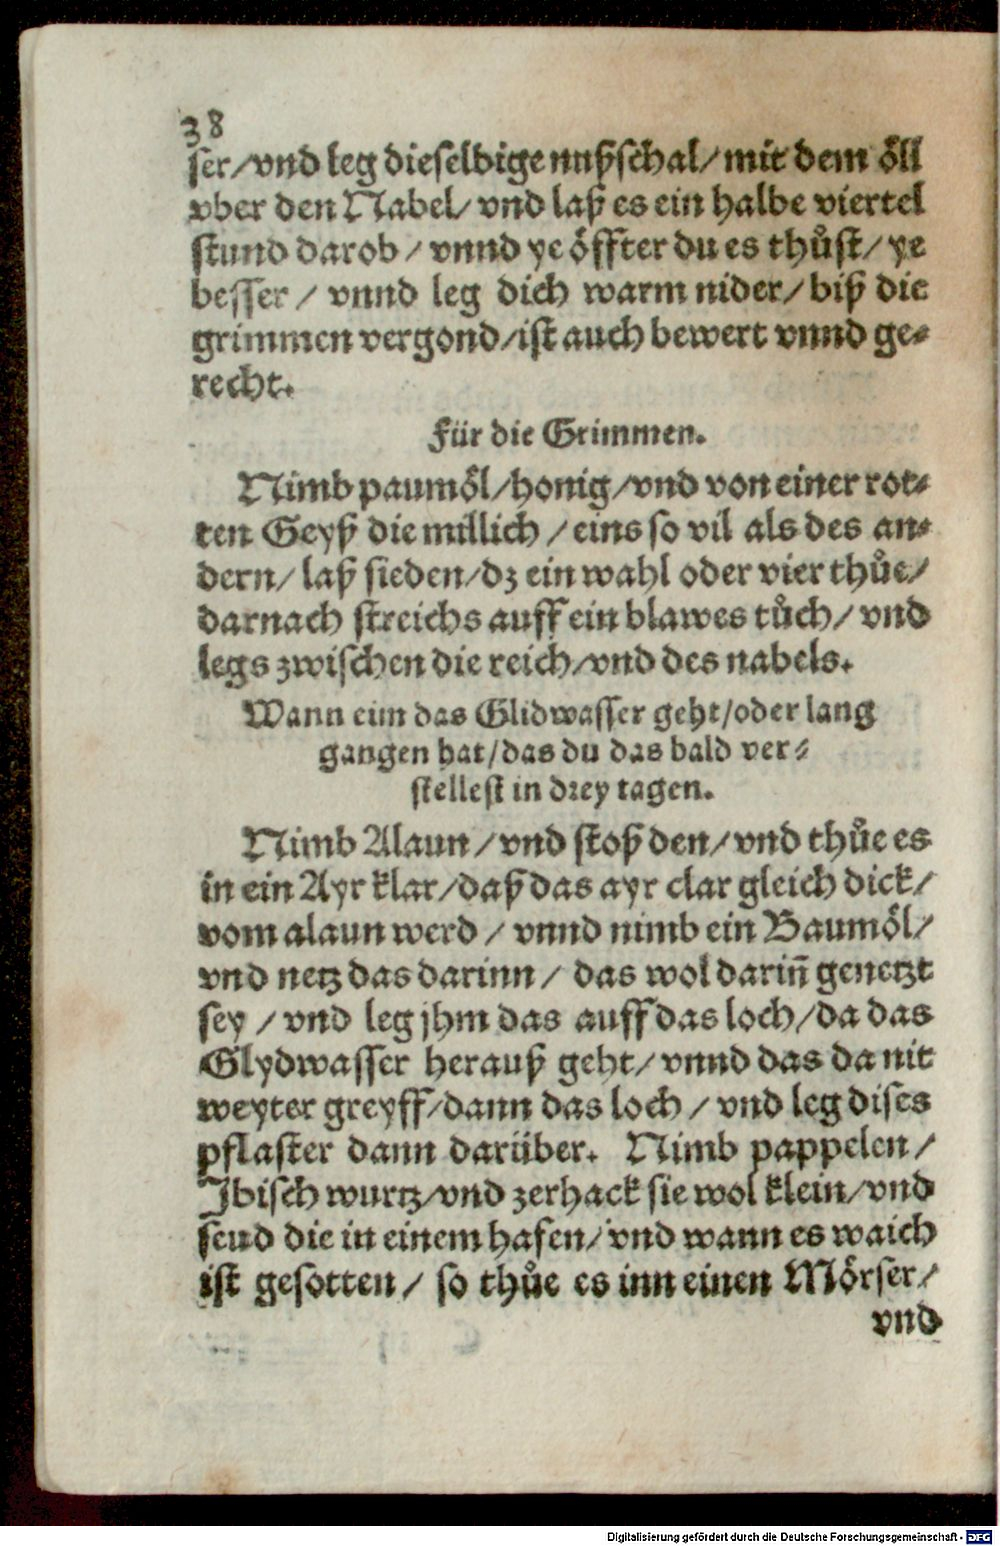 38
ser/vnd leg dieselbige nußschal/mit dem öll
vber den Nabel/ vnd laß es ein halbe viertel
stund darob / vnnd ye öffter du es thůst/ ye
besser / vnnd leg dich warm nider/ biß die
grimmen vergond/ist auch bewert vnnd ge-
recht.
Für die Grimmen.
Nimb paumöl/honig/vnd von einer rot-
ten Geyß die millich / eins so vil als des an-
dern/ laß sieden/dz ein wahl oder vier thůe/
darnach streichs auff ein blawes tůch/ vnd
legs zwischen die reich/vnd des nabels.
Wann eim das Glidwasser geht/oder lang
gangen hat/das du das bald ver-
stellest in drey tagen.
Nimb Alaun / vnd stoß den/ vnd thůe es
in ein Ayr klar/daß das ayr clar gleich dick/
vom alaun werd / vnnd nimb ein Baumöl/
vnd netz das darinn / das wol dariñ genetzt
sey / vnd leg jhm das auff das loch/da das
Glydwasser herauß geht/ vnnd das da nit
weyter greyff/dann das loch / vnd leg dises
pflaster dann darüber. Nimb pappelen/
Jbisch wurtz/vnd zerhack sie wol klein/vnd
seud die in einem hafen/ vnd wann es waich
ist gesotten/ so thůe es inn einen Mörser/
vnd
Digitalisierung gefördert durch die Deutsche Forschungsgemeinschaft - DFG